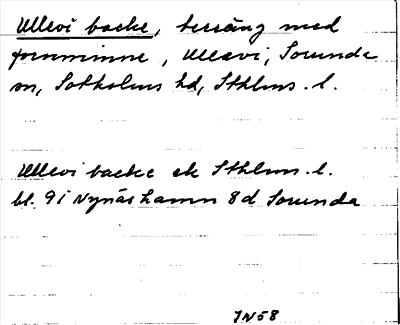 Ullevi backe, terräng med
fornminne, Ullevi, Sorunda
sn, Sotholms hd, Sthlms l.
Ullevi backe ek Sthlms l.
bl. 9i Nynäshamn 8d Sorunda
IN58